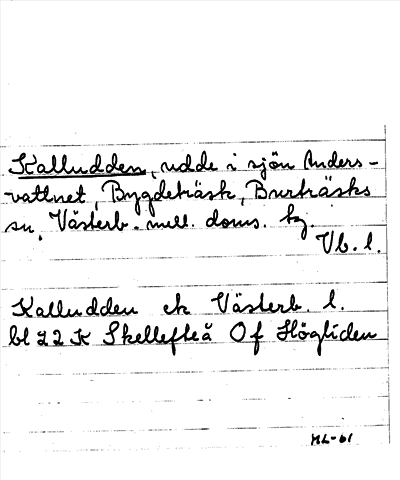 Kalludden, udde i sjön Anders-
vattnet, Bygdeträsk, Burträsks
sn, Västerb. mell. doms. tg.
Vb. l.
Kalludden ek Västerb. l.
bl 22 K Skellefteå Of Högliden
ML-61